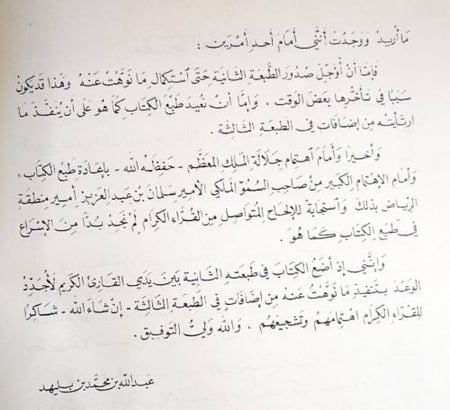 مَا أريد ووَجَدْتُ أنَّني أمَامَ أحَدِ أمْرَين :
فَإمَّا أنْ أُؤَجِّلَ صُدُورَ الطَّبعَةِ الثَانيَةِ حَتَّى اسْتكمَال مَا نَوَّهْتُ عَنْهُ وَهَذا قَد يَكون
سَبَبًا في تَأخّرِهَا بَعضَ الوَقت . وَإمَّا أنْ نعيدَ طبْعَ الكِتَاب كَمَا هوَ عَلى أن يُنَفَّذَ مَا
ارتأيتُه مِن إضَافَات فى الطبعَةِ الثّالثةِ .
وَأخيرًا وَأمَامَ اهتِمَام جَلَالَة الملِك المعَظَّم - حَفِظَهُ الله - بإعَادَةِ طبْعِ الكِتَاب ،
وَأمَامَ الاهْتِمَام الكَبير مِنْ صَاحِبِ السُّمُوّ المَلَكي الأمير سَلمَان بْن عَبد العزيز أمِير مِنطقة
الرِيَاض بذلكَ وَاسْتجَابَةً للإلحَاح المُتوَاصِل مِن القُرَّاء الكِرَام لَمْ نَجِدْ بُدًّا مِنَ الإسْرَاع
في طبْعِ الكِتَاب كَمَا هُوَ .
وَإنَّني إذ أضَعُ الكِتَابَ في طبْعَتِه الثَّانِيَة بَيْنَ يَدَي القَارئ الكَريم لأجَدِّدُ
الوَعْدَ بتَنفيذِ مَا نَوَّهْتُ عَنْهُ مِن إضَافَاتٍ في الطَبعَةِ الثّالثَةِ - إنْ شَاءَ الله - شَاكِرًا
للقُرّاءِ الكِرَامِ اهْتِمَامَهُم وَتَشجيعَهُم . وَاللهُ وَليُّ التَوفيق .
عَبدالله بن محمّد بن بليهد